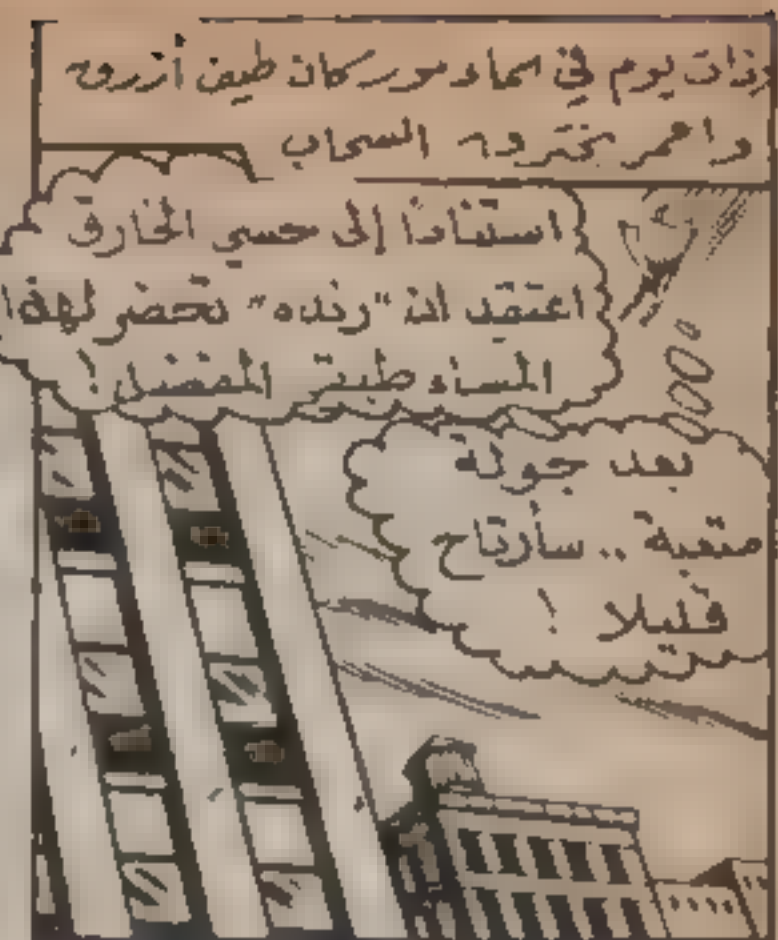 وذات يوم في سماء مور كان طيف أزرق
واحمر يخترق السحاب
استنادًا إلى حسي الخارق
اعتقد ان "رنده" تحضر لهذا
المساء طبقي المفضل !
بعد جولة
متعبة .. سأرتاح
قليلا !